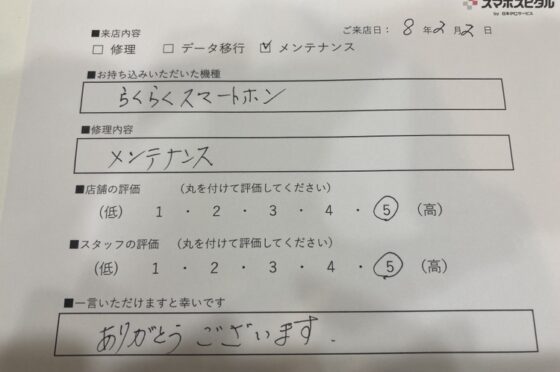 スマホスピタル
by 日本PCサービス
■来店内容
ご来店日： 8 年 2 月 2 日
□ 修理 □ データ移行 ☑ メンテナンス
■お持ち込みいただいた機種
らくらくスマートホン
■修理内容
メンテナンス
■店舗の評価 （丸を付けて評価してください）
（低） 1 ・ 2 ・ 3 ・ 4 ・ 5 （高）
■スタッフの評価 （丸を付けて評価してください）
（低） 1 ・ 2 ・ 3 ・ 4 ・ 5 （高）
■一言いただけますと幸いです
ありがとうございます.